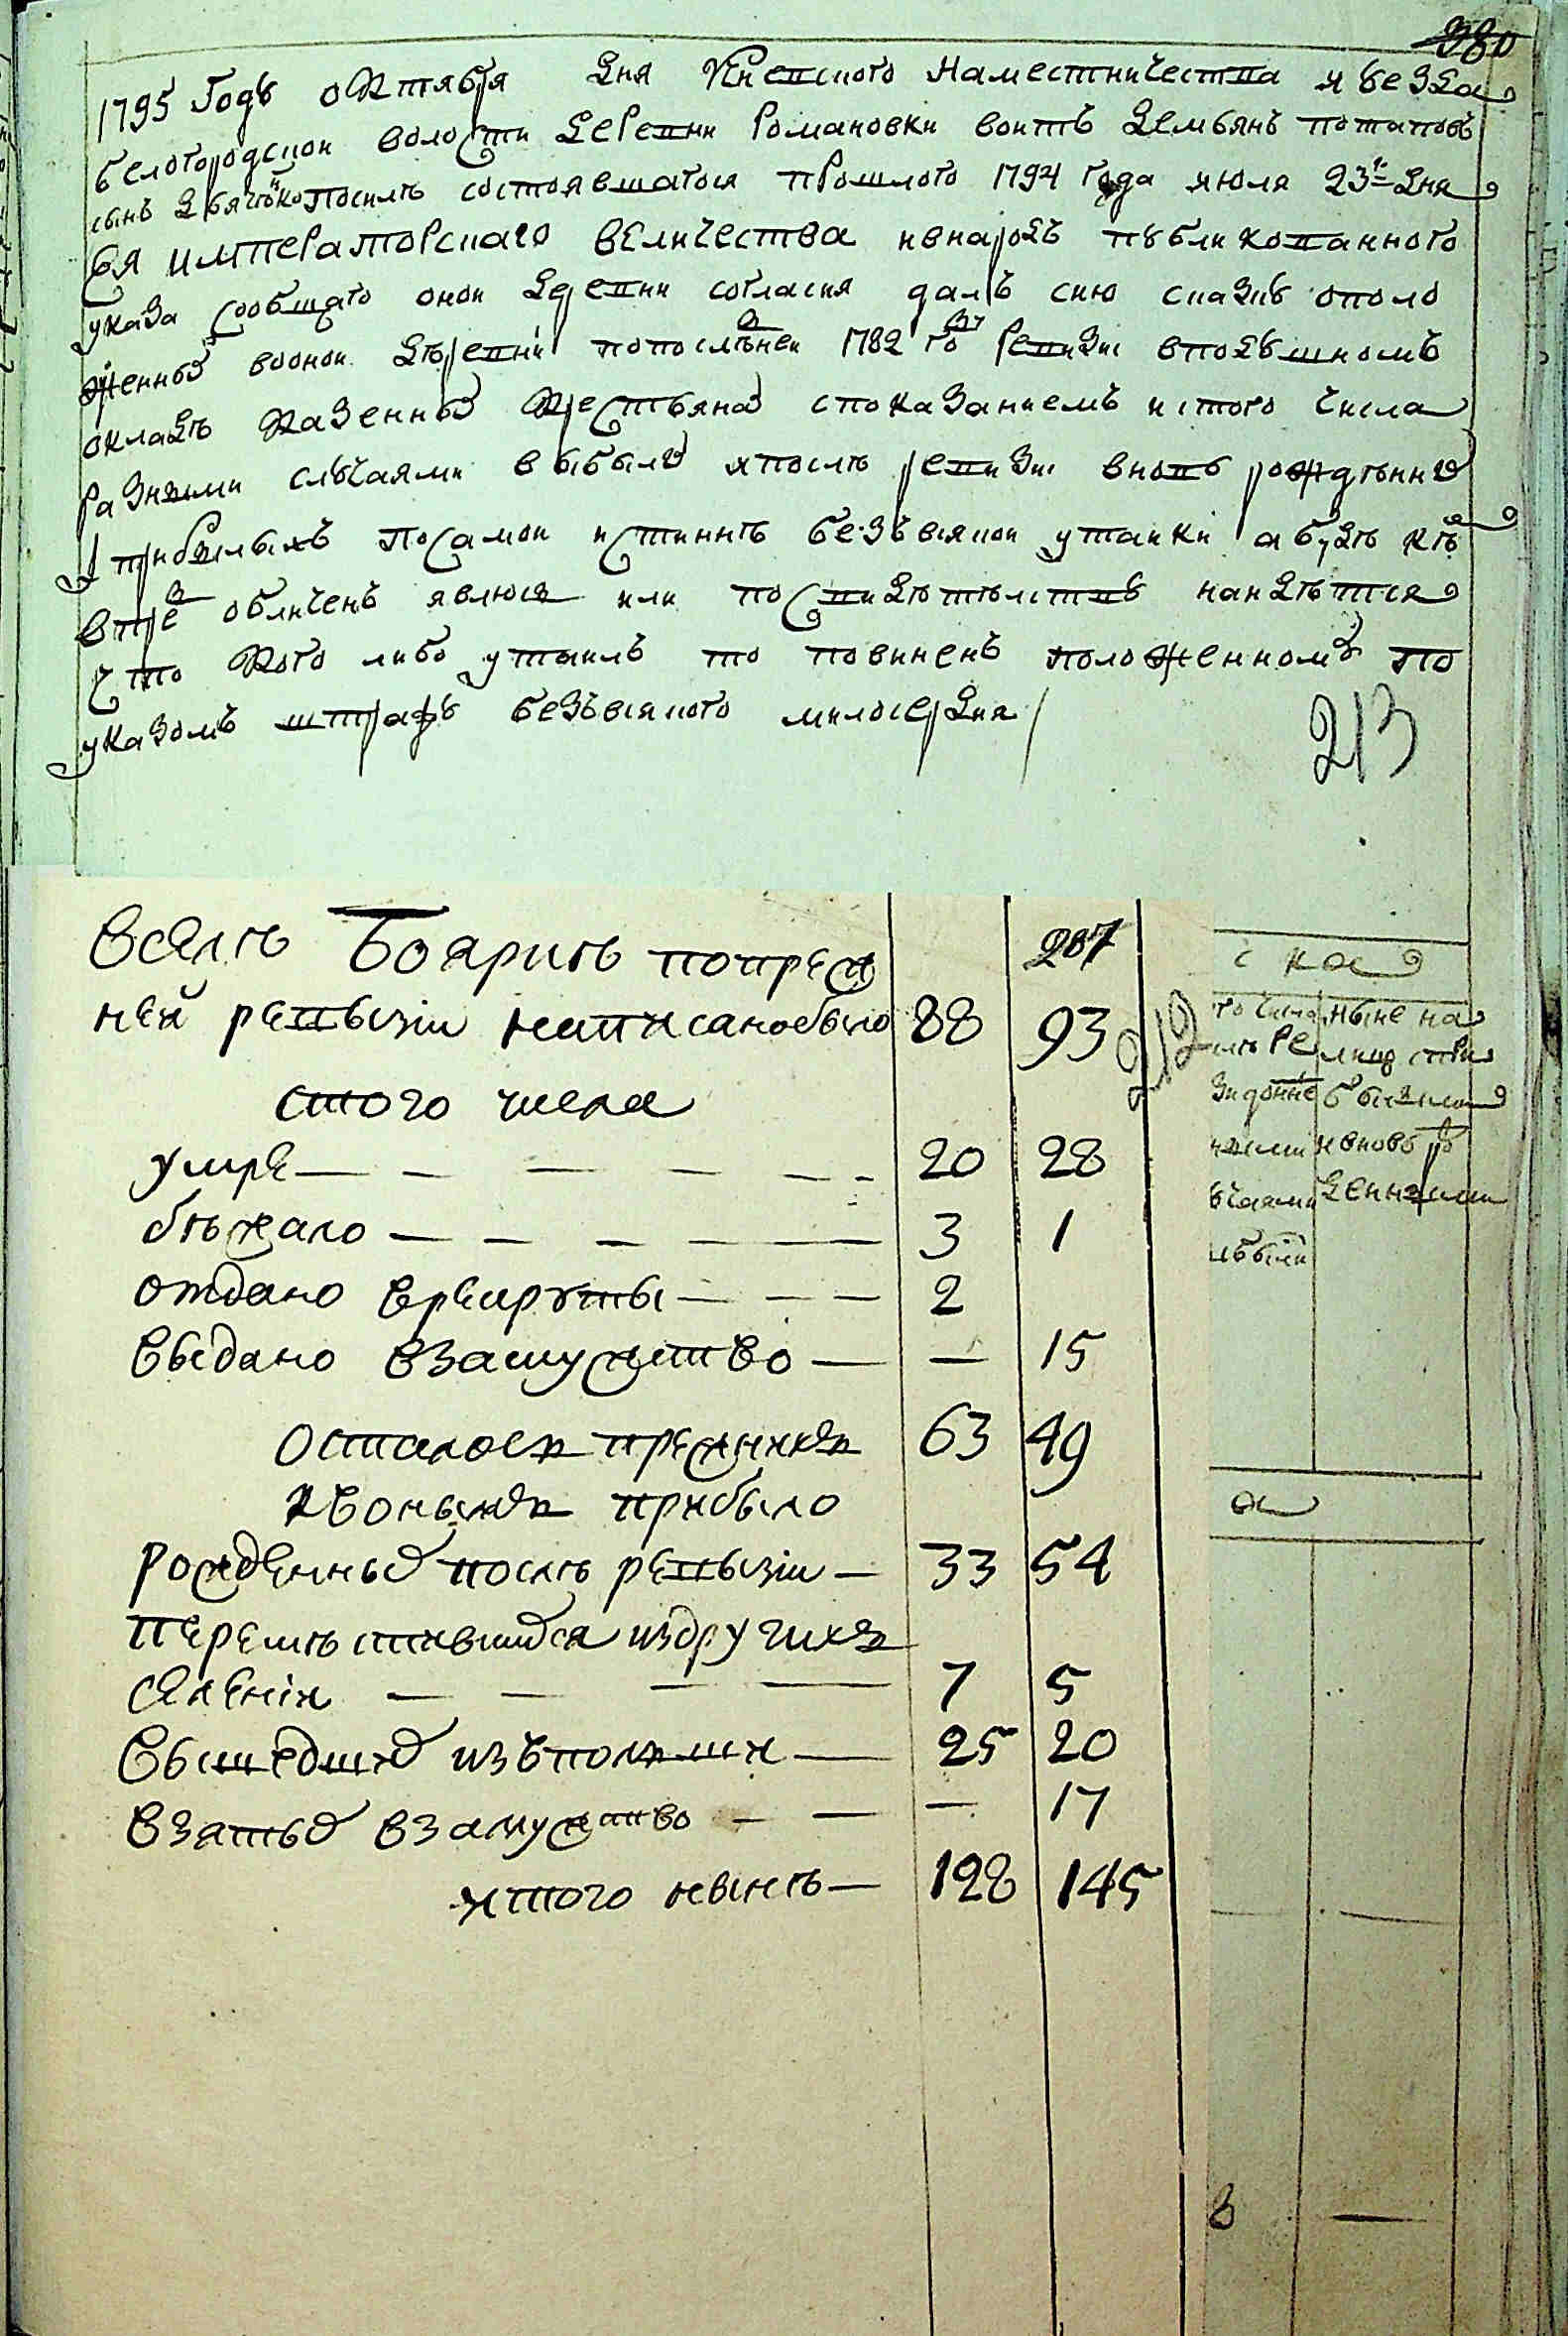 380
1795 Годъ октября дня Киевского наместничества и уезда
белогородской волости деревни Романовки воитъ демьянъ потаповъ
сынъ посилѣ состоявшагося прошлого 1794 года июля 23го дня
Ея императорскаго величества и внародъ публикованного
указа собщаго оной деревни согласия далъ сию сказку о поло
женныхъ воонои деревни по последней 1782 го ревизии вподушномъ
окладѣ казенныхъ крестьянахъ споказаниемъ истого числа
разными случаями выбылыхъ ипослѣ ревизии вновь рожденныхъ
и прибылыхъ по самой истиннѣ безъвсякой утайки а будѣ кѣ
втре обличенъ явлюся или по свидѣтельству найдется
что кого либо утаилъ то повиненъ положенному по
указомъ штрафу безъвсякого милосердия
213
Вселѣ Бояркѣ попреж
ней ревызіи написанобыло 88 93
287
212
стого числа
умре 20 28
бѣжало 3 1
отдано врекруты 2
выдано взамужство — 15
осталося прежних 63 49
ивоных прибыло
рожденных послѣ ревызіи 33 54
перемѣстившихся издругих
селеній 7 5
вышедших изъполши 25 20
взятых взамужство — 17
итого нынѣ 128 145
с каз
ныне на
лицо стри
бывшими
и вновь ро
денными